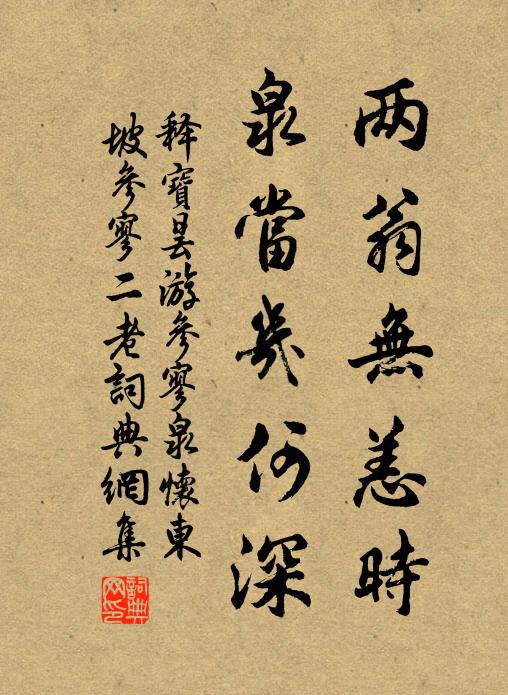 两翁無恙時
泉當幾何深
釋寶曇游參寥泉懷東
坡參寥二老詞典網集
詞典网印